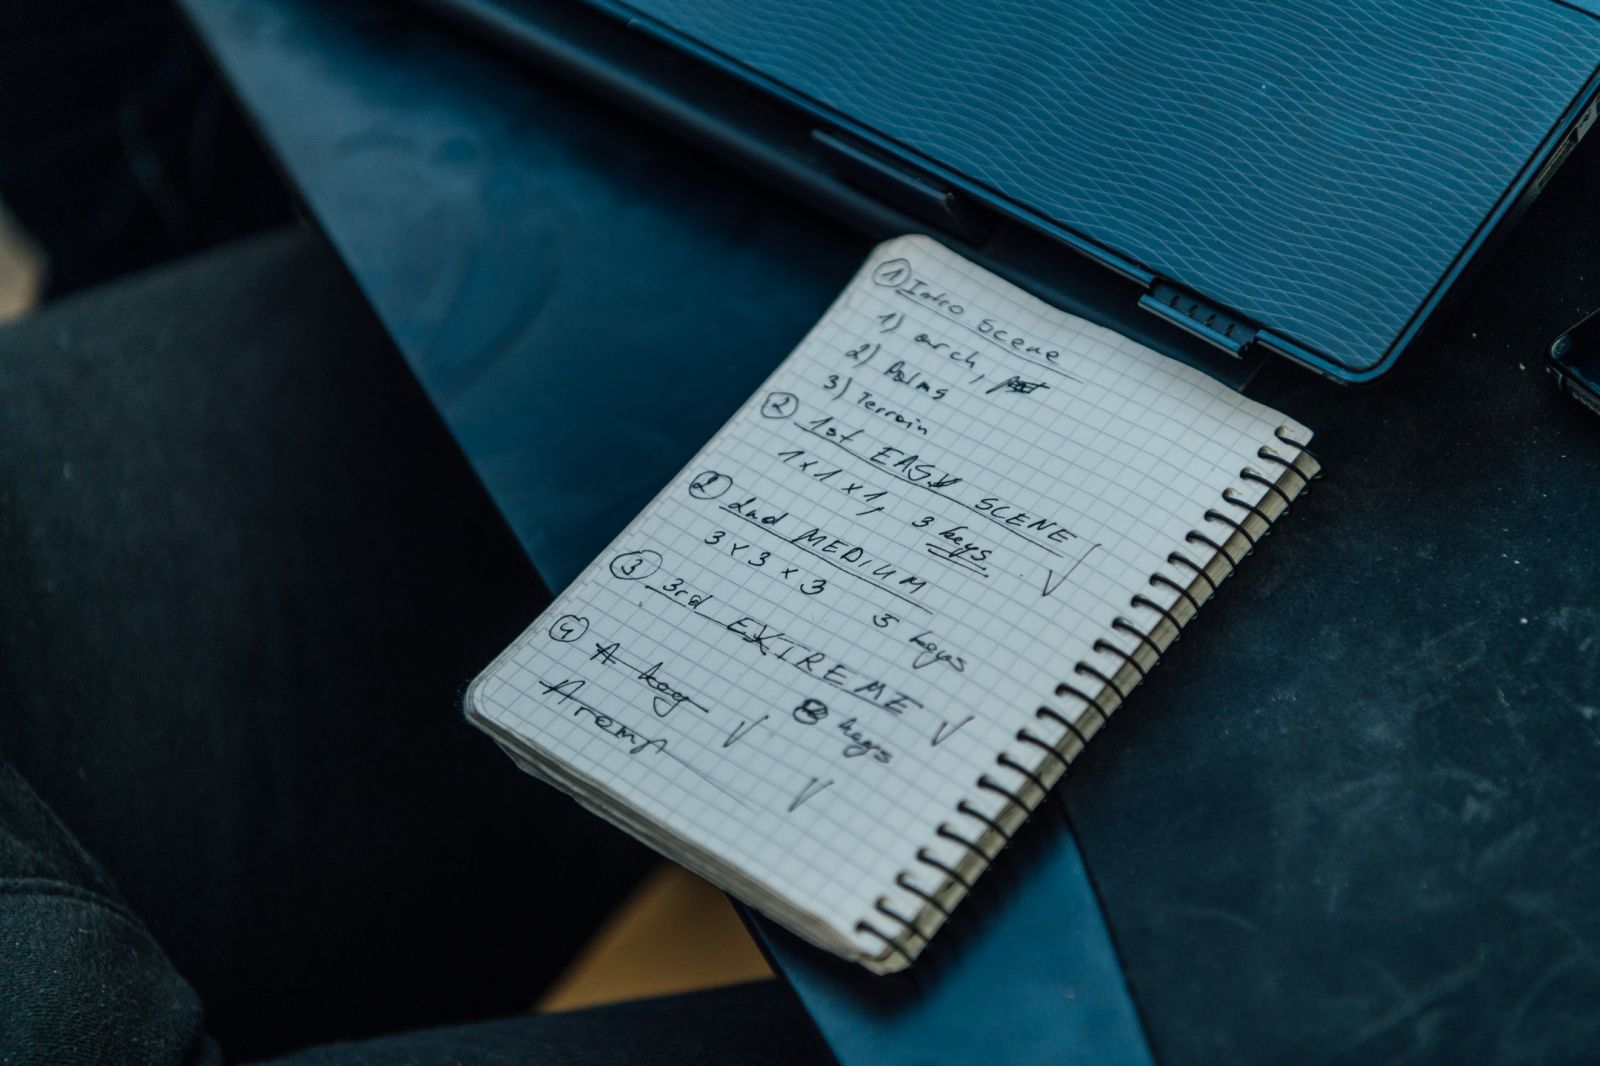 ① Intro Scene
1) arch,
2) Palms
3) Terrain
② 1st EASY SCENE
1x1x1, 3 keys. √
② 2nd MEDIUM
3x3x3 5 keys
③ 3rd EXTREME √
keys
④ A key √
√